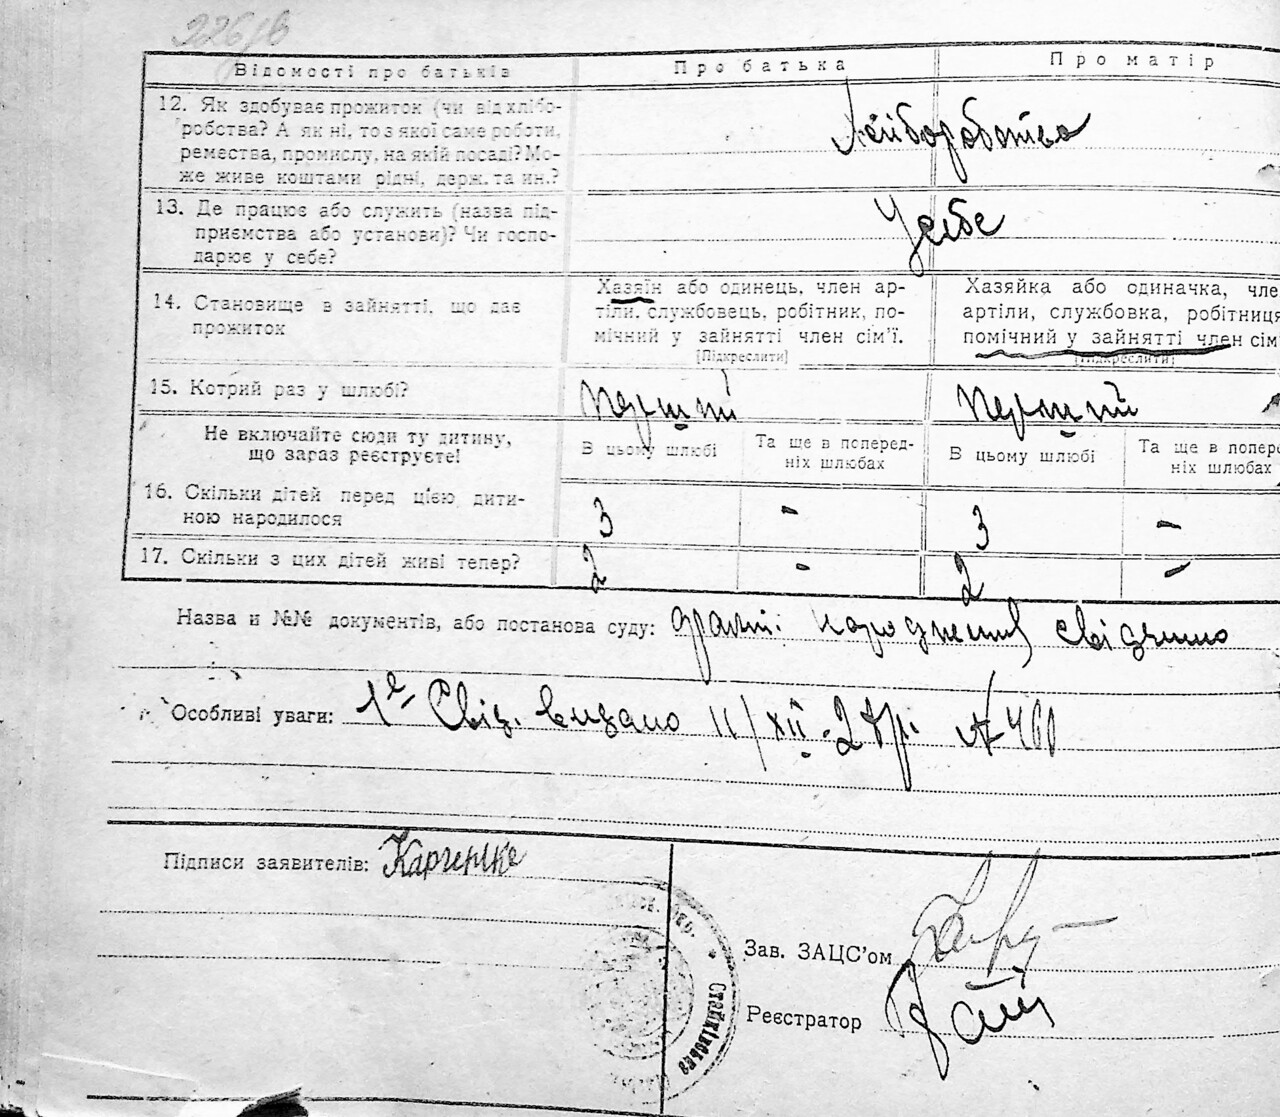 226/в
Відомості про батьків
Про батька
Про матір
12. Як здобуває прожиток (чи від хлібо-
робства? А як ні, то з якої саме роботи,
ремества, промислу, на якій посаді? Мо-
же живе коштами рідні, держ. та ин.?
Хліборобство
13. Де працює або служить (назва під-
приємства або установи)? Чи госпо-
дарює у себе?
У себе
14. Становище в зайнятті, що дає
прожиток
Хазяїн або одинець, член ар-
тіли, службовець, робітник, по-
мічний у зайнятті член сім'ї.
[Підкреслити]
Хазяйка або одиначка, чле
артіли, службовка, робітниця
помічний у зайнятті член сім'
[Підкреслити]
15. Котрий раз у шлюбі?
перший
перший
Не включайте сюди ту дитину,
що зараз реєструєте!
В цьому шлюбі
Та ще в поперед-
ніх шлюбах
В цьому шлюбі
Та ще в попере
ніх шлюбах
16. Скільки дітей перед цією дити-
ною народилося
3
-
3
-
17. Скільки з цих дітей живі тепер?
2
-
2
-
Назва и №№ документів, або постанова суду:
Особливі уваги: Свід. видано 11/XII-28р. №
Підписи заявителів:
Зав. ЗАЦС'ом
Реєстратор